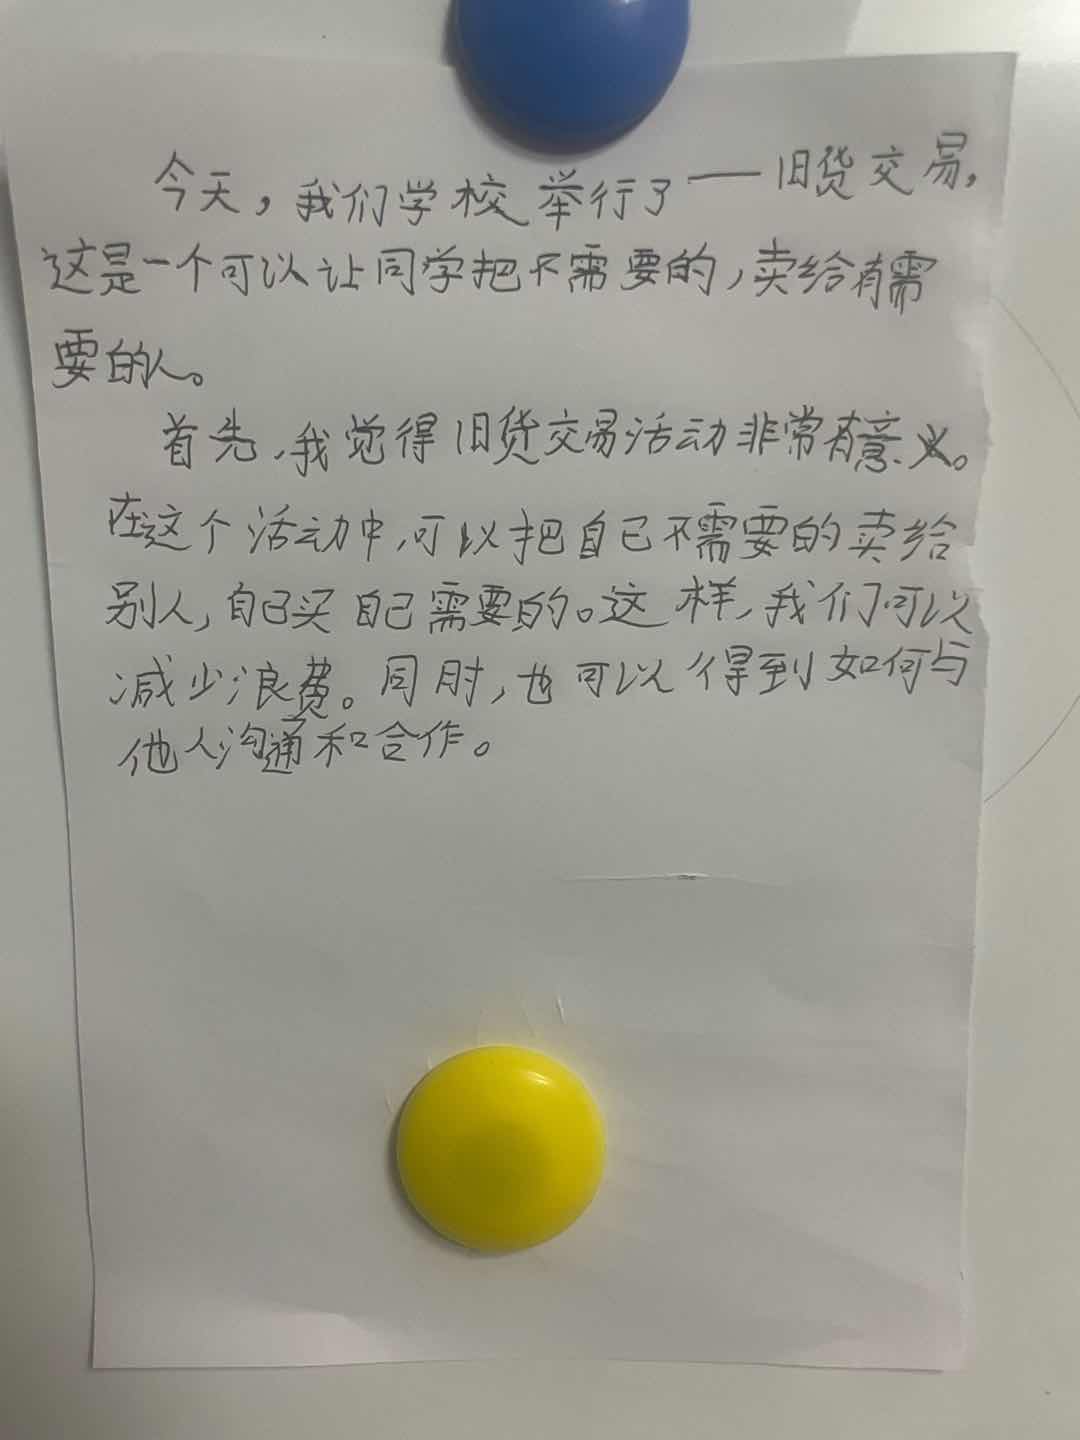 今天，我们学校举行了——旧货交易，
这是一个可以让同学把不需要的，卖给有需
要的人。
首先，我觉得旧货交易活动非常有意义。
在这个活动中，可以把自己不需要的卖给
别人，自己买自己需要的。这样，我们可以
减少浪费。同时，也可以得到如何与
他人沟通和合作。